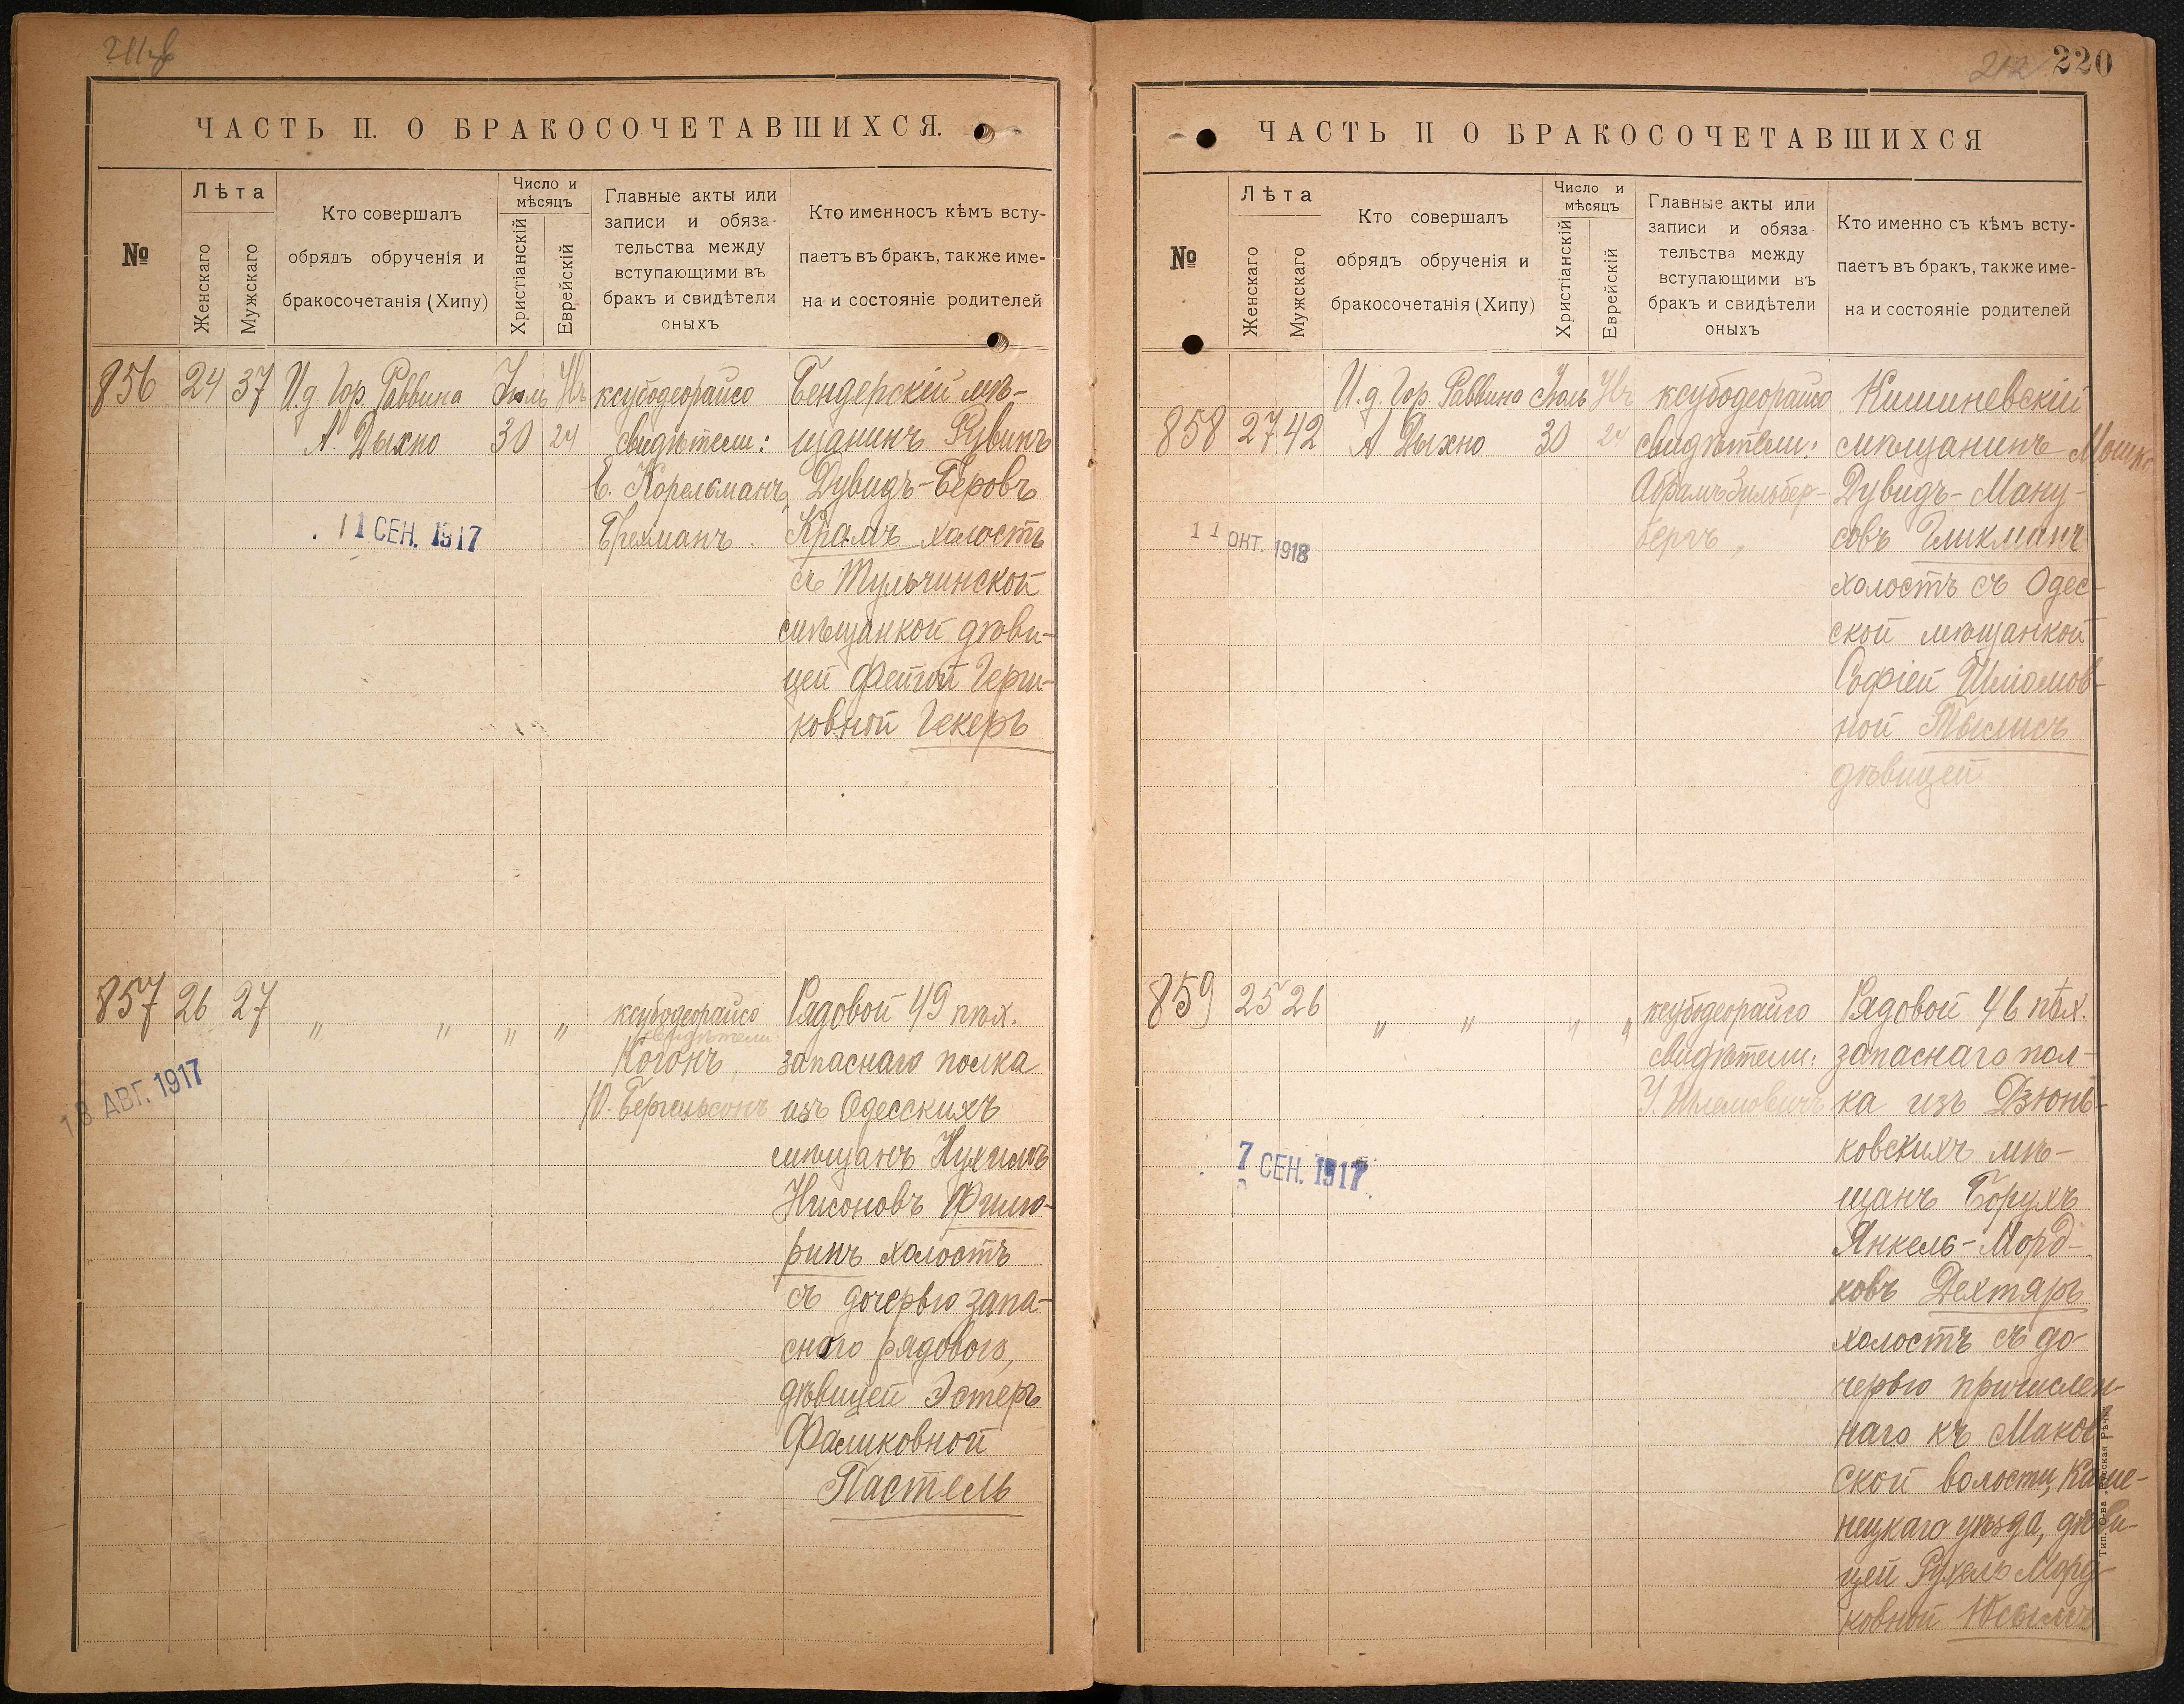 ЧАСТЬ II. О БРАКОСОЧЕТАВШИХСЯ.
№
Лѣта
Женскаго
Мужскаго
Кто совершалъ
обрядъ обрученія и
бракосочетанія (Хипу)
Число и
мѣсяцъ
Христіанскій
Еврейскій
Главные акты или
записи и обяза-
тельства между
вступающими въ
бракъ и свидѣтели
оныхъ
Кто именносъ кѣмъ всту-
паетъ въ бракъ, также име-
на и состояніе родителей
856 24 37
И.д. Гор. Раввина
А. Дыхно
Іюль
30
24
ксубодеорайсо
свидѣтели:
Е. Корелсманъ,
Брехманъ.
Бендерскій мѣ-
щанинъ Рувинъ
Дувидъ-Беровъ
Крамъ холостъ
съ Тульчинской
мѣщанкой дѣви-
цей Фейгой Герш-
ковной Гекеръ
11 СЕН. 1917
857 26 27
" " " "
ксубодеорайсо
свидѣтели:
Когонъ,
Ю. Бергельсонъ
Рядовой 49 пѣх.
запаснаго полка
изъ Одесскихъ
мѣщанъ Нухимъ
Нисоновъ Фишо-
ринъ холостъ
съ дочерью запа-
снаго рядового,
дѣвицей Эстеръ
Фаликовной
Пастель
18 АВГ. 1917
220
ЧАСТЬ II О БРАКОСОЧЕТАВШИХСЯ
№
Лѣта
Женскаго
Мужскаго
Кто совершалъ
обрядъ обрученія и
бракосочетанія (Хипу)
Число и
мѣсяцъ
Христіанскій
Еврейскій
Главные акты или
записи и обяза
тельства между
вступающими въ
бракъ и свидѣтели
оныхъ
Кто именно съ кѣмъ всту-
паетъ въ бракъ, также име-
на и состояніе родителей
858 27 42
И.д. Гор. Раввина
А Дыхно
Іюль
30
24
ксубодеорайсо
свидѣтели:
Абрамъ Зильбер-
бергъ,
Кишиневскій
мѣщанинъ Мошко
Дувидъ-Ману-
совъ Гликманъ
холостъ съ Одес-
ской мѣщанкой
Софіей Шліомов-
ной Тылисъ
дѣвицей
11 ОКТ. 1918
859 25 26
" " " "
ксубодеорайсо
свидѣтели:
У. Шлемовичъ
Рядовой 46 пѣх.
запаснаго пол-
ка изъ Дзюнь-
ковскихъ мѣ-
щанъ Борухъ
Янкель-Морд-
ковъ Дехтяръ
холостъ съ до
черью причислен-
наго къ Маков-
ской волости, Каме-
нецкаго уѣзда, дѣви-
цей Рухель Морд-
ковной
7 СЕН. 1917